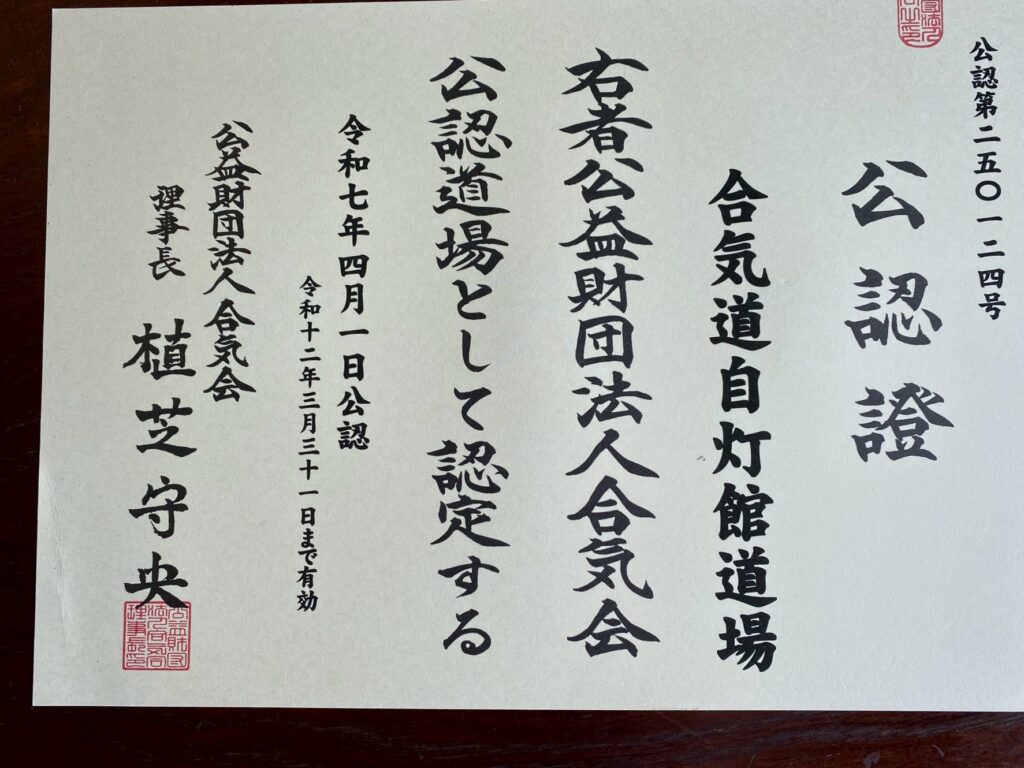 公認第二五〇一二四号
公認證
合気道自灯館道場
右者公益財団法人合気会
公認道場として認定する
令和七年四月一日公認
令和十二年三月三十一日まで有効
公益財団法人合気会
理事長 植芝守央